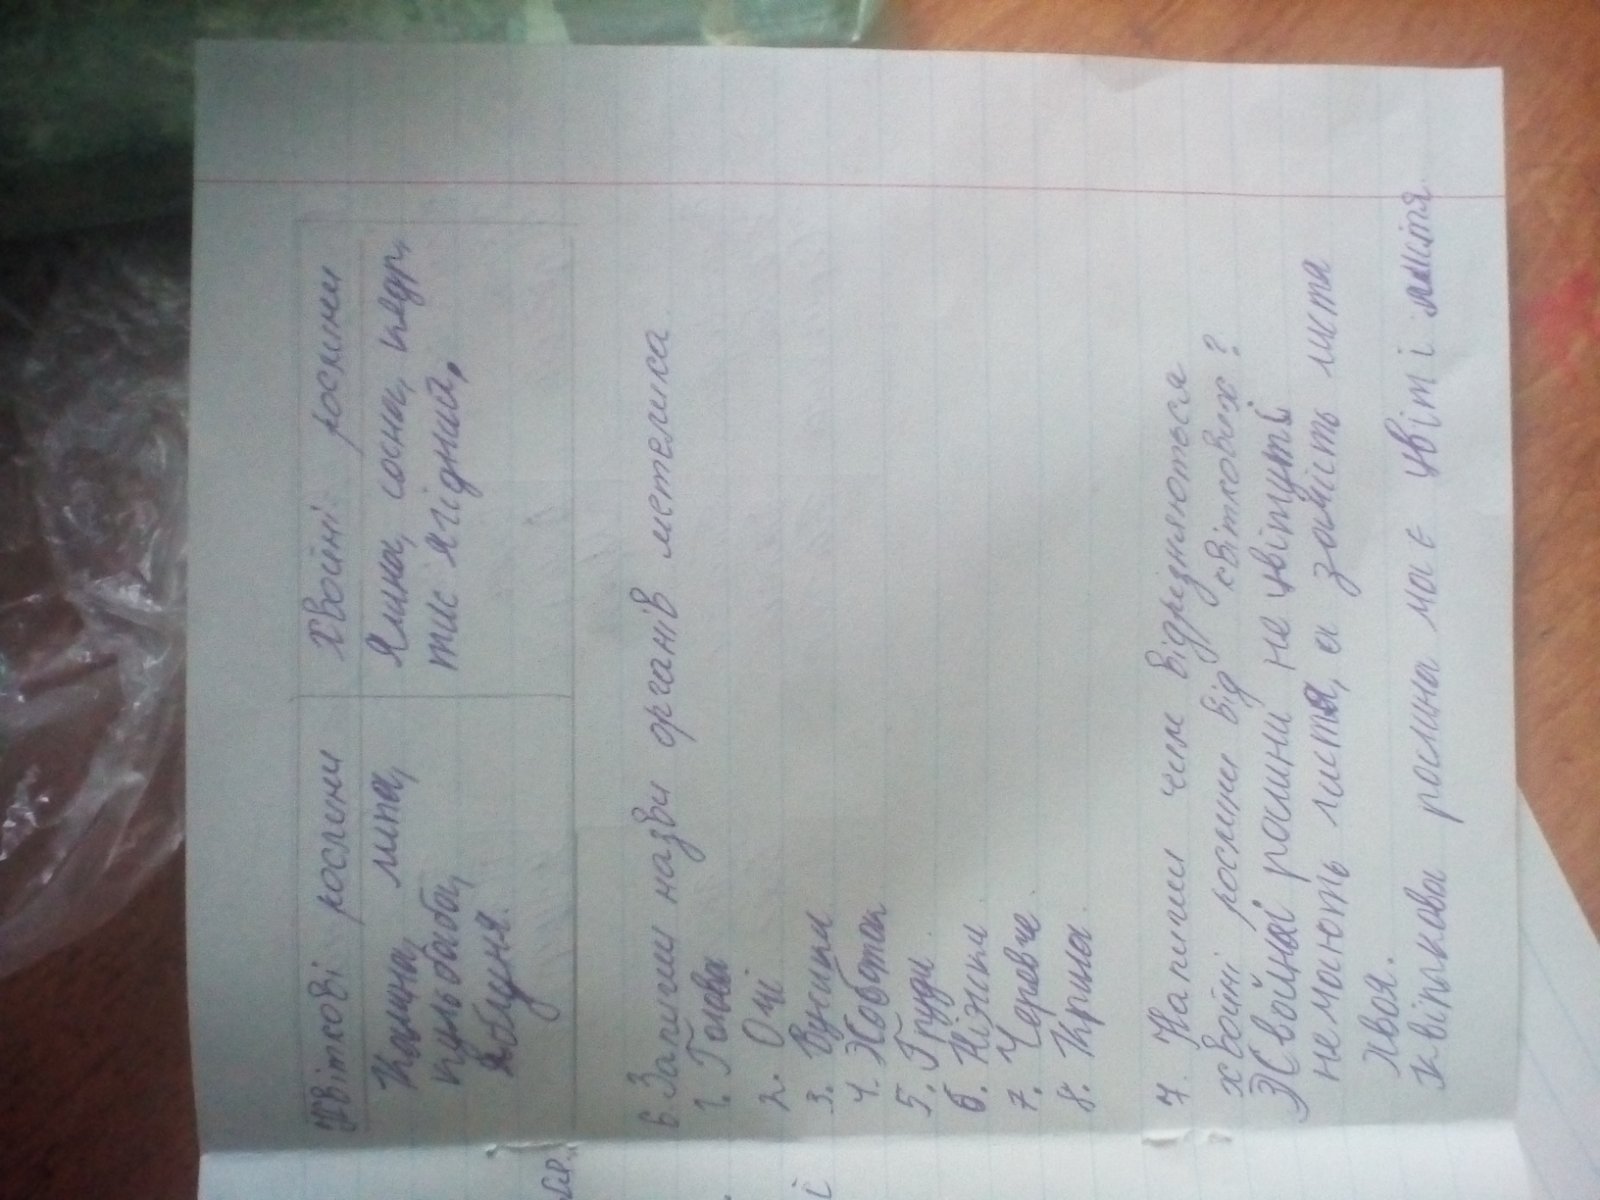 Квіткові рослини Хвойні рослини
Калина, липа, Ялина, сосна, кедр,
кульбаба, тис ягідний,
яблуня.
6. Запиши назви органів метелика
1. Голова
2. Очі
3. Вусики
4. Хоботок
5. Груди.
6. Ніжки
7. Черевце.
8. Крила.
7. Напиши чим відрізняються
хвойні рослини від квіткових?
Хвойна рослини не цвітуть і
не мають листя, а замість листа
хвоя.
квіткова рослина має цвіт і листя.